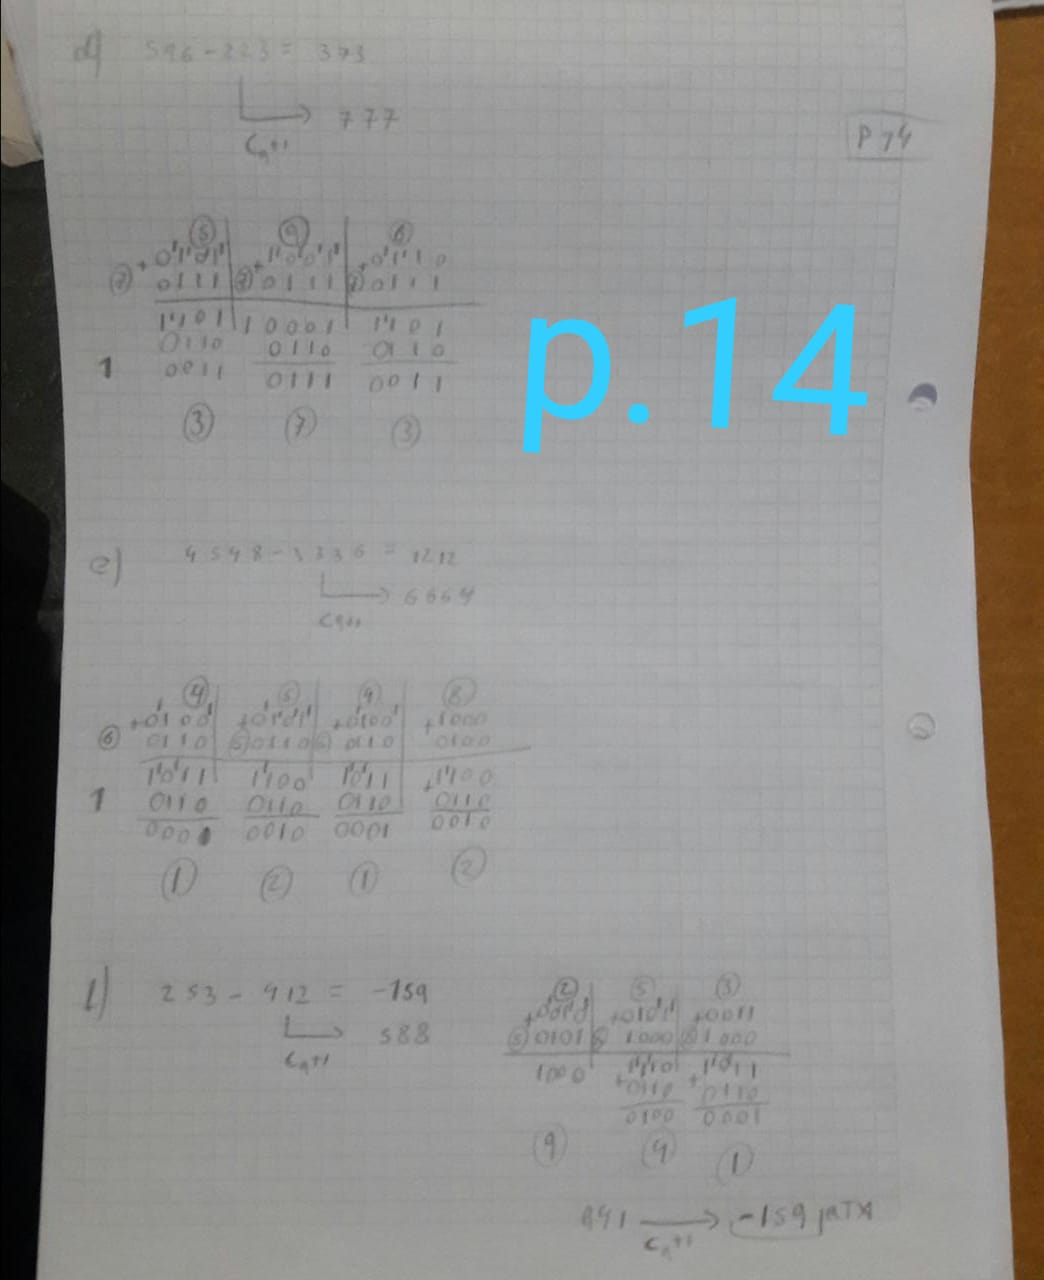 d) 596 - 223 = 373
777
Ca+1
P 14
5 9 6
+ 0101 + 1001 + 0110
7 0111 7 0111 7 0111
1101 10001 1101
0110 0110 0110
1 0011 0111 0011
3 7 3
p.14
e) 4548 - 3336 = 1212
6664
Ca+1
4 5 4 8
+0100 +0101 +0100 +1000
6 0110 6 0110 6 0110 0100
1011 1100 1011 +1100
1 0110 0110 0110 0110
0001 0010 0001 0010
1 2 1 2
f) 253 - 412 = -159
588
Ca+1
2 5 3
+0010 +0101 +0011
5 0101 8 1000 8 1000
1000 1101 1011
+0110 +0110
0100 0001
4 1
841 -159
Ca+1